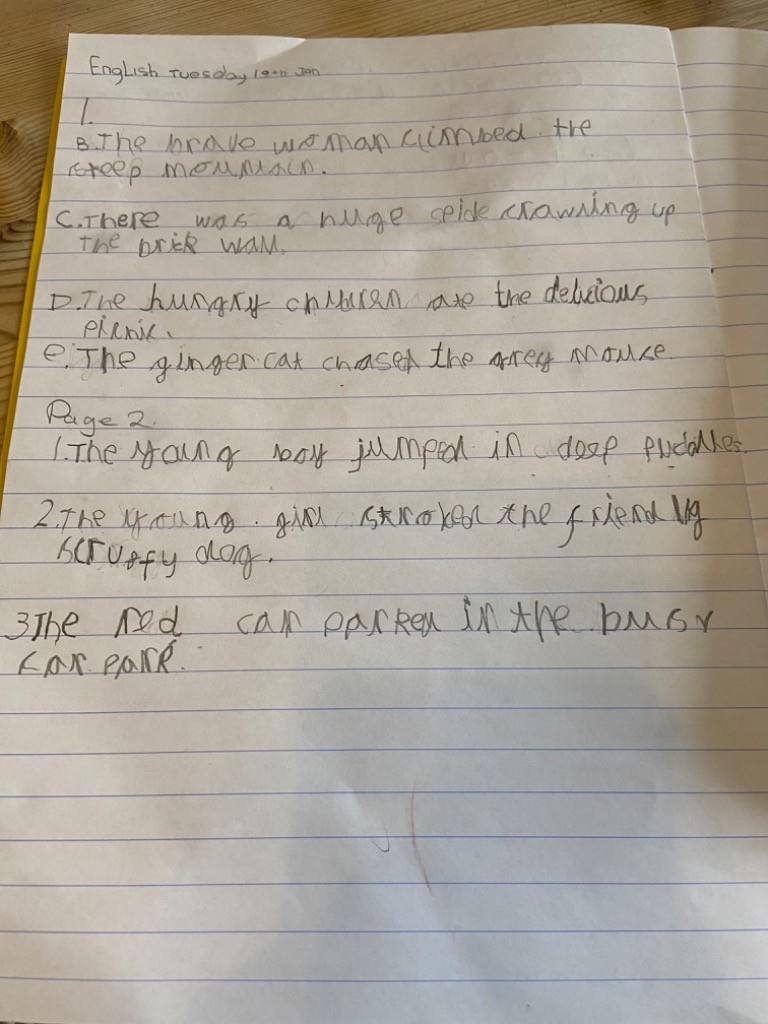 English Tuesday 19th Jan
1.
B. The brave woman climbed the
steep mountain.
C. There was a huge speide crawling up
the brick wall.
D. The hungry children ate the delicious
picnic.
e. The ginger cat chased the grey mouse
Page 2.
1. The young boy jumped in deep puddles.
2. The young girl stroked the friendly
scruffy dog.
3 The red car parked in the busy
car park.